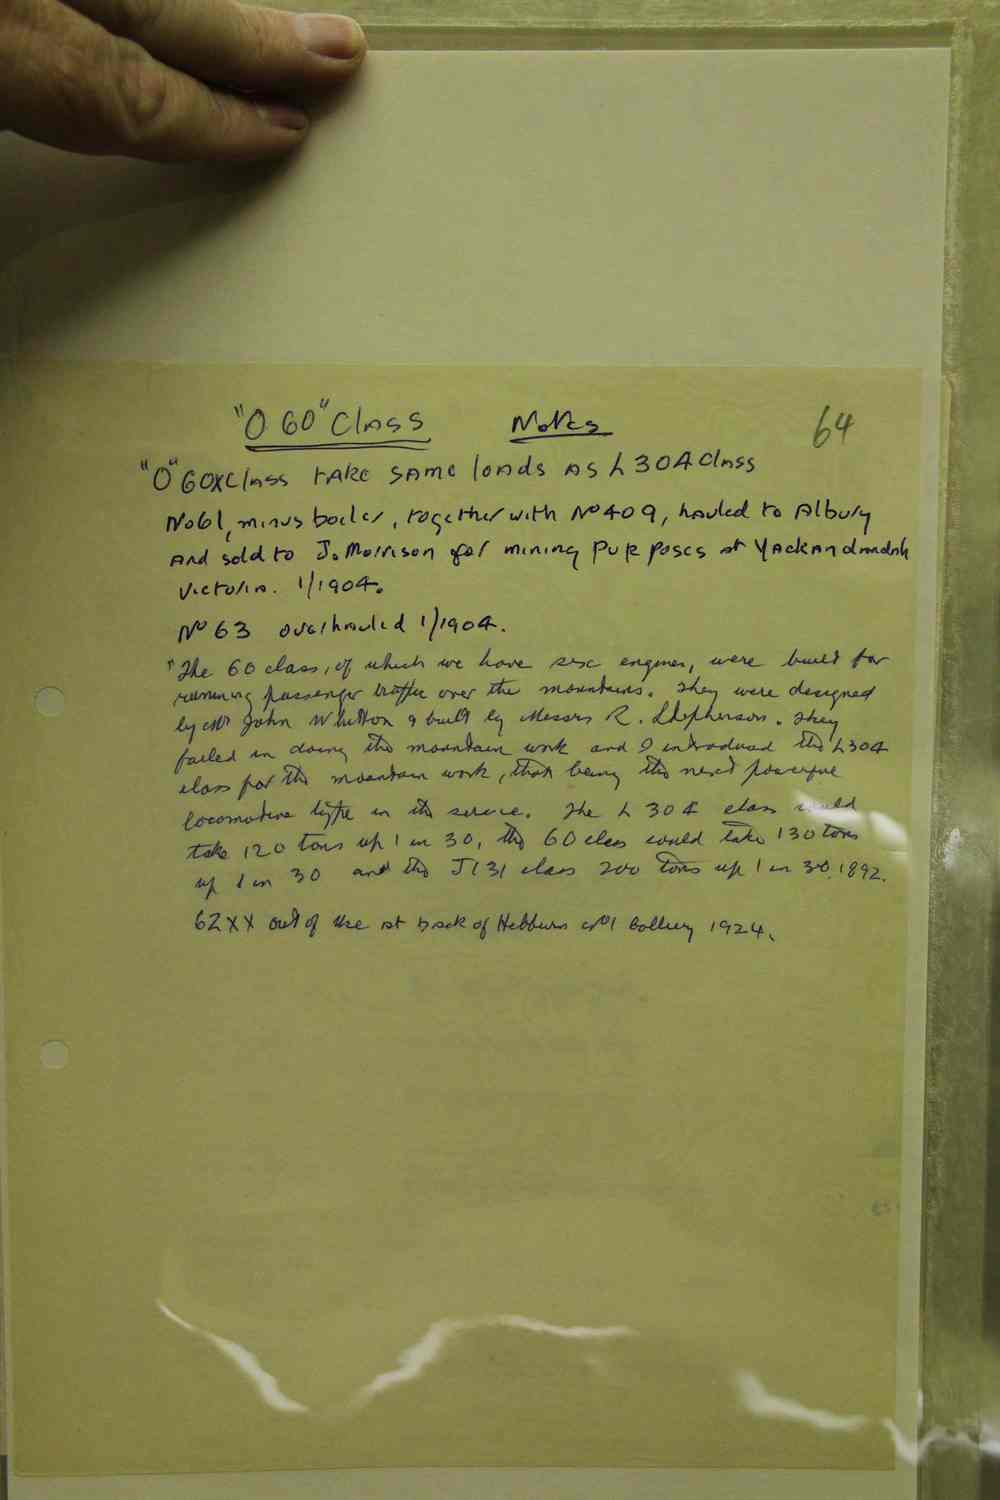 "O 60" Class Notes 64
"O" 60x Class take same loads as L 304 Class
No 61, minus boiler, together with No 409, hauled to Albury
and sold to J. Morrison for mining purposes at Yackandandah
Victoria. 1/1904.
No 63 overhauled 1/1904.
"The 60 class, of which we have six engines, were built for
running passenger traffic over the mountains. They were designed
by Mr John Whitton & built by Messrs R. Stephenson. They
failed in doing the mountain work and I introduced the L304
class for the mountain work, that being the next powerful
locomotive type in the service. The L 304 class could
take 120 tons up 1 in 30, the 60 class could take 130 tons
up 1 in 30 and the J131 class 200 tons up 1 in 30. 1892.
62XX out of use at back of Hebburn No 1 Colliery 1924.